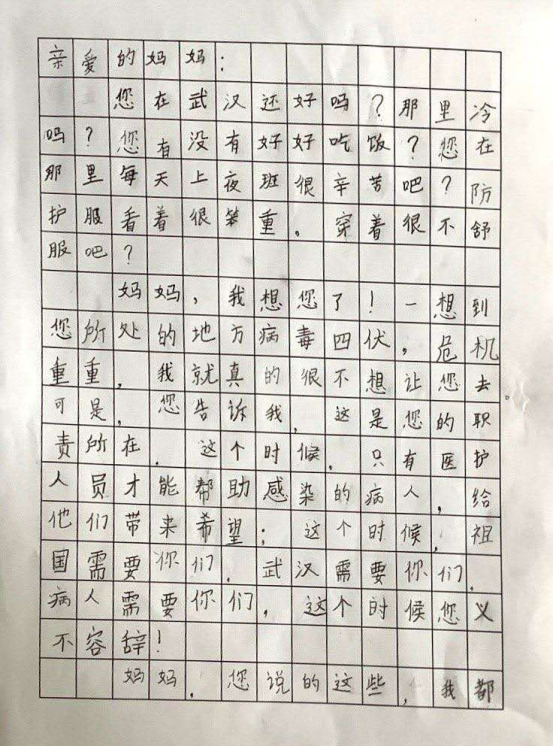 亲爱的妈妈：
您在武汉还好吗？那里冷
吗？您有没有好好吃饭？您在
那里每天上夜班很辛苦吧？防
护服看着很笨重，穿着很不舒
服吧？
妈妈，我想您了！一想到
您所处的地方病毒四伏，危机
重重，我就真的很不想让您去。
可是，您告诉我，这是您的职
责所在，这个时候，只有医护
人员才能帮助感染的病人，给
他们带来希望；这个时候，祖
国需要你们，武汉需要你们，
病人需要你们，这个时候您义
不容辞！
妈妈，您说的这些，我都